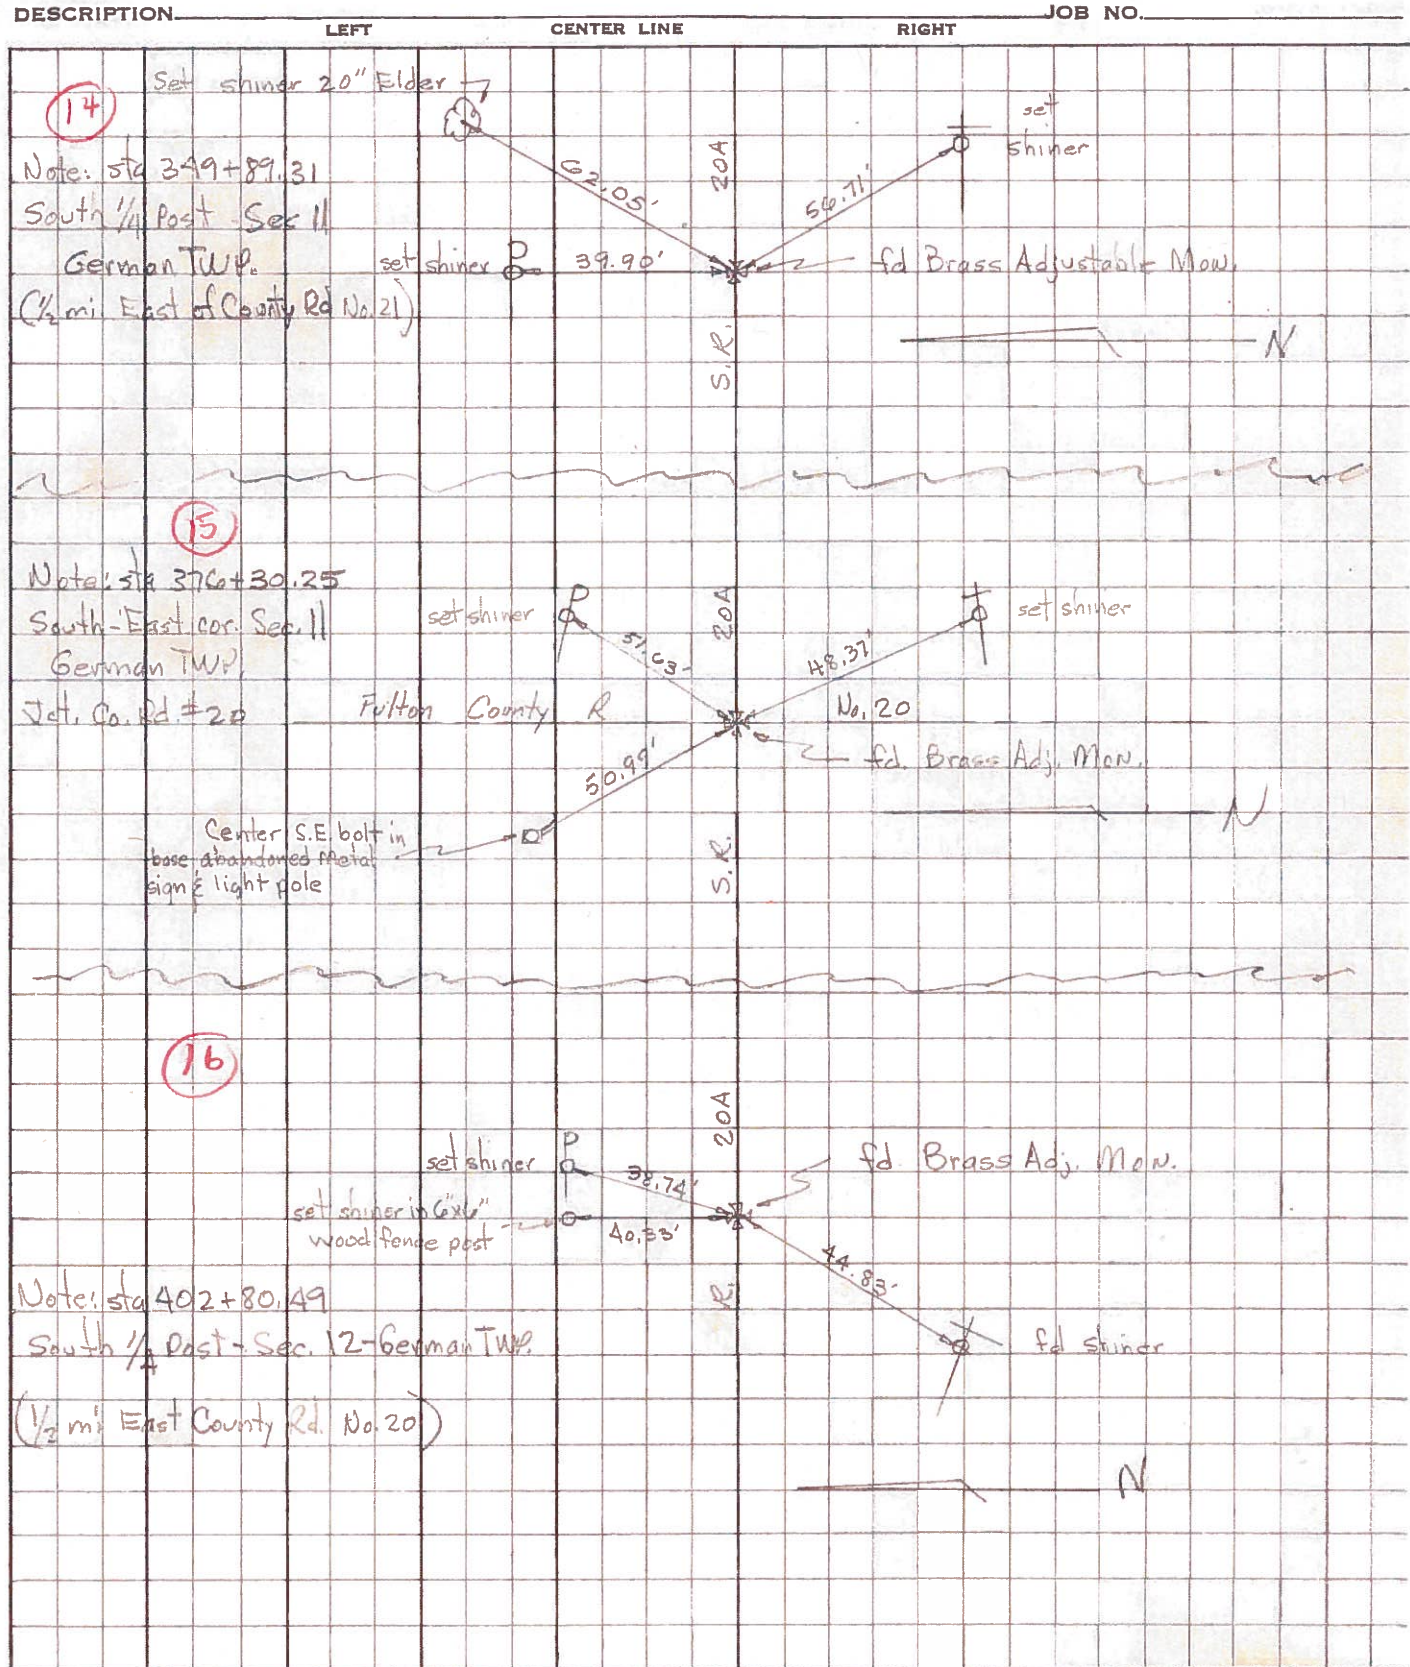 DESCRIPTION JOB NO.
LEFT CENTER LINE RIGHT
14
Set shiner 20" Elder
set
shiner
Note: sta 349+89.31
South 1/4 Post - Sec 11
German TWP.
(1/2 mi East of County Rd No. 21)
62.05'
20A
56.71'
set shiner P 39.90'
fd Brass Adjustable Mon.
S.R.
N
15
Note: sta 376+30.25
South-East cor. Sec. 11
German TWP.
Jct. Co. Rd. #20
set shiner P
20A
set shiner
51.63'
48.37'
Fulton County R No. 20
fd. Brass Adj. Mon.
50.99'
N
Center S.E. bolt in
base abandoned metal
sign & light pole
S.R.
16
20A
set shiner P
38.74'
fd Brass Adj. Mon.
set shiner in 6"x6"
wood fence post
40.33'
44.83'
R.
Note: sta 402+80.49
South 1/4 Post - Sec. 12 - German TWP.
(1/2 mi East County Rd. No. 20)
fd shiner
N